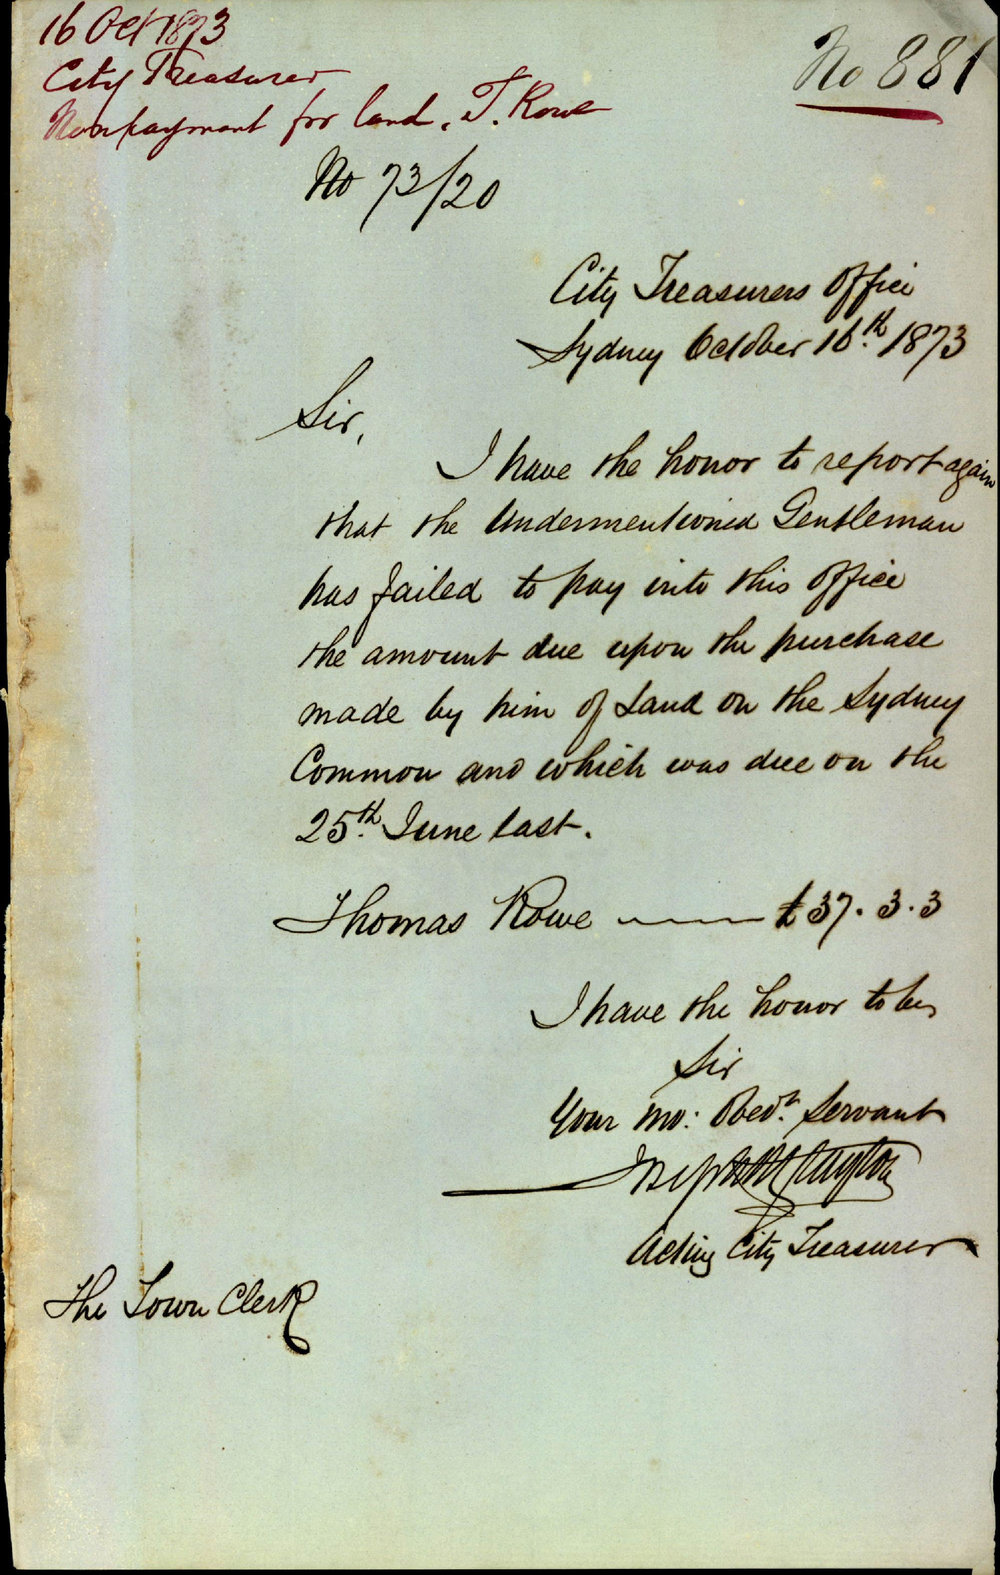 16 Oct 1873
City Treasurer
Nonpayment for land, T. Rowe
No 881
No 73/20
City Treasurers Office
Sydney October 16.th 1873
Sir,
I have the honor to report again
that the Undermentioned Gentleman
has failed to pay into this office
the amount due upon the purchase
made by him of Land on the Sydney
Common and which was due on the
25.th June last.
Thomas Rowe — £37. 3. 3
I have the honor to be,
Sir
Your mo: Obedt. Servant
Acting City Treasurer
The Town Clerk